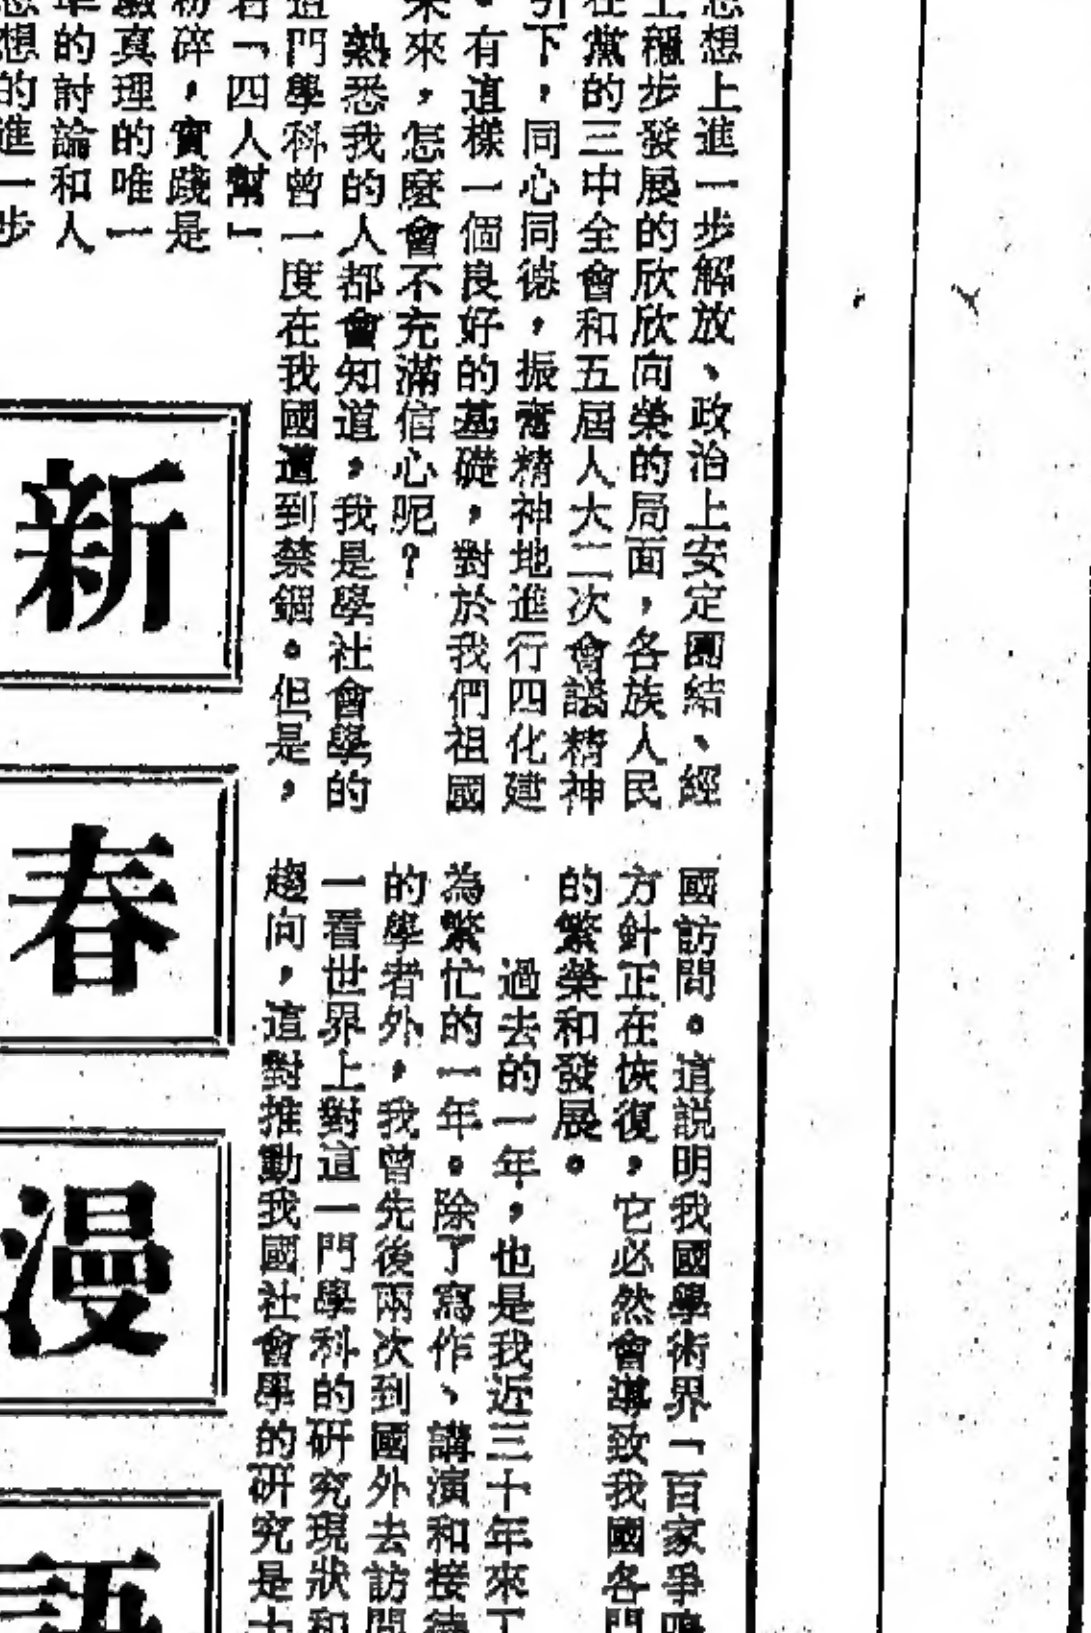 想上進一步解放、政治上安定團結、經
穩步發展的欣欣向榮的局面，各族人民
在黨的三中全會和五屆人大二次會議精神
引下，同心同德，振奮精神地進行四化建
。有這樣一個良好的基礎，對於我們祖國
來，怎麼會不充滿信心呢？
熟悉我的人都會知道，我是學社會學的
這門學科曾一度在我國遭到禁錮。但是，
「四人幫」
粉碎，實踐是
驗真理的唯一
的討論和人
想的進一步
國訪問。這説明我國學術界「百家爭鳴
方針正在恢復，它必然會導致我國各門
的繁榮和發展。
過去的一年，也是我近三十年來工
為繁忙的一年。除了寫作、講演和接待
的學者外，我曾先後兩次到國外去訪問
一看世界上對這一門學科的研究現狀和
趨向，這對推動我國社會學的研究是十
新春漫語